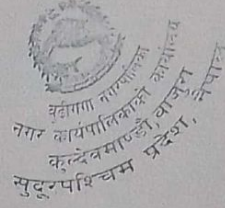 बुढीगंगा नगरपालिका
नगर कार्यपालिकाको कार्यालय
कुल्देवमाण्डौ, बाजुरा
सुदूरपश्चिम प्रदेश, नेपाल